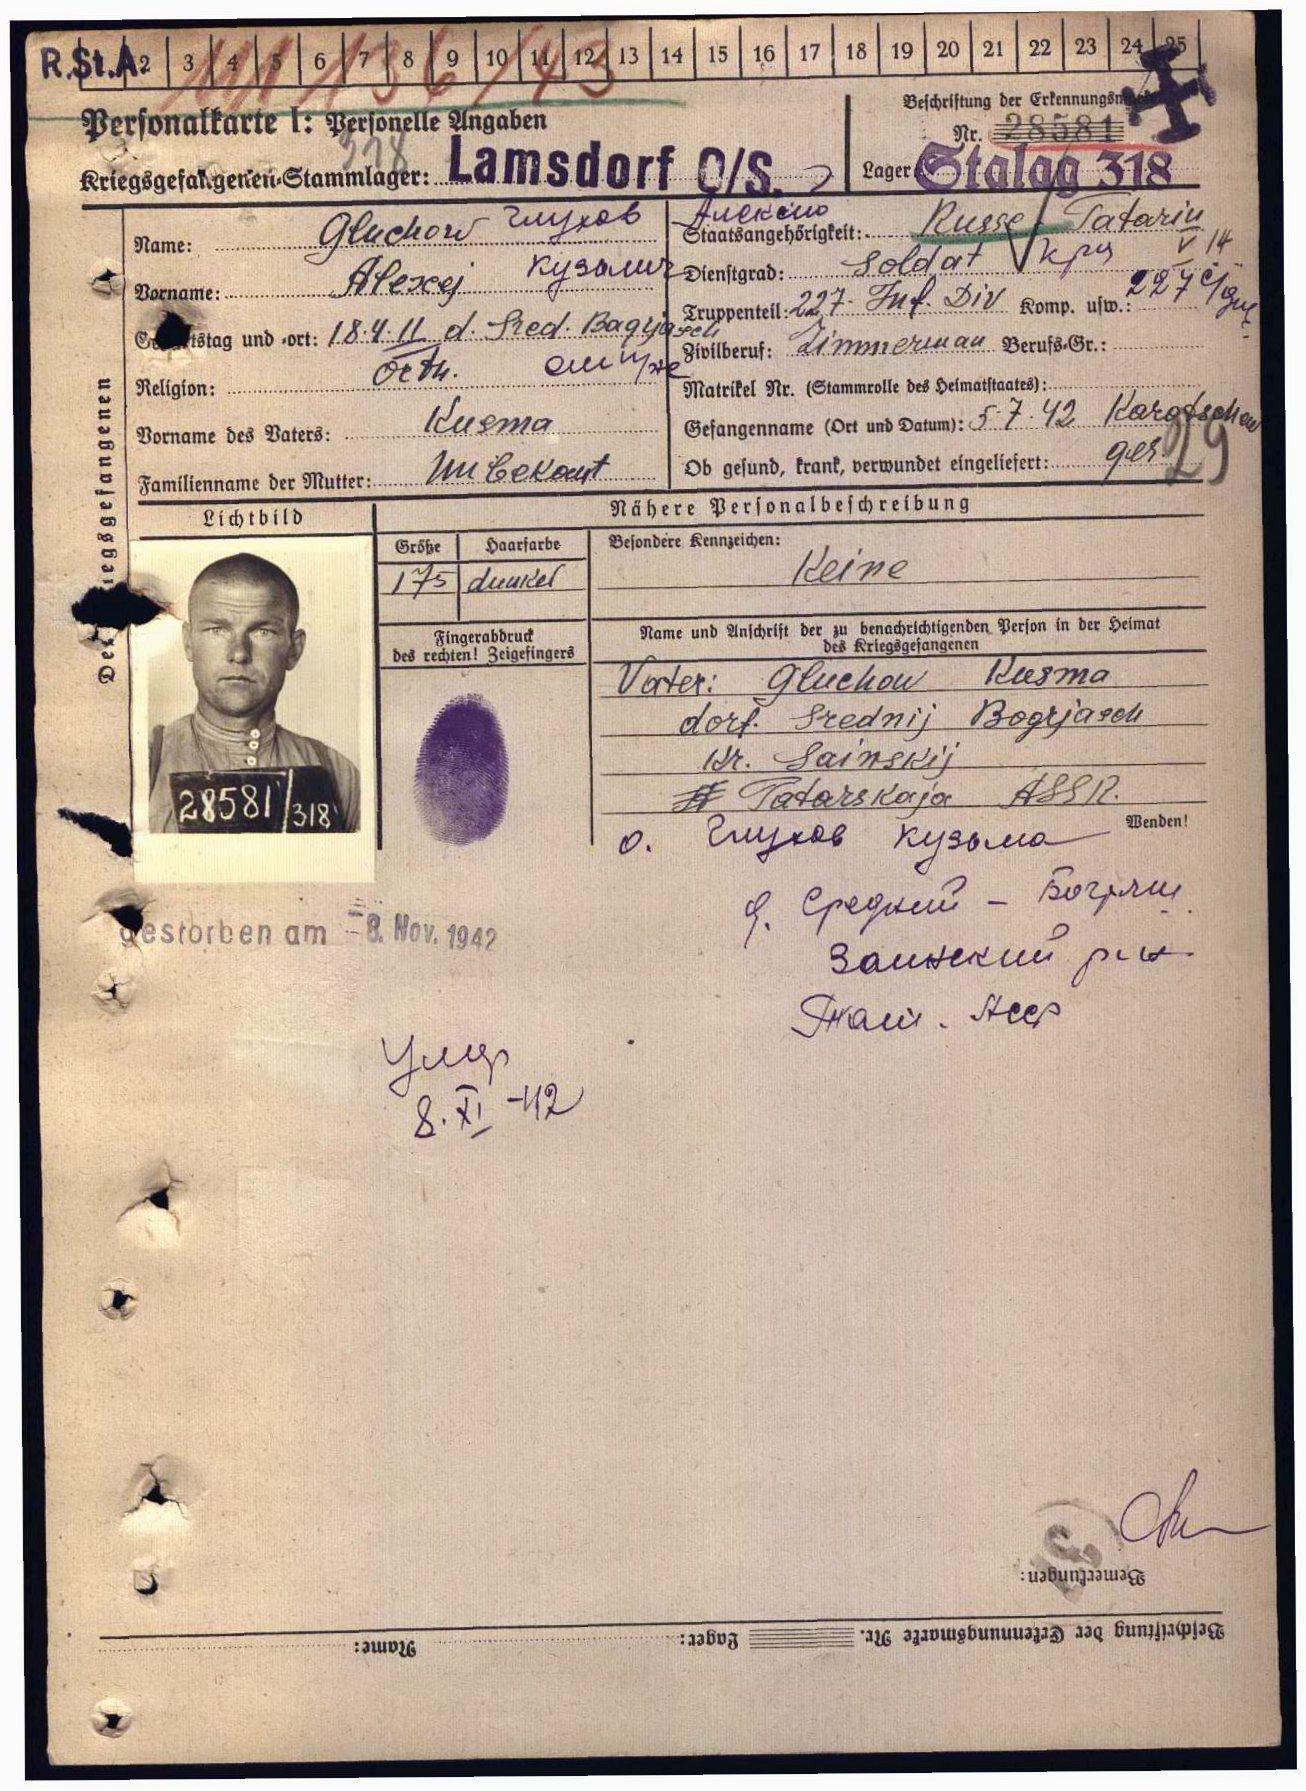 R.St.A. 2 3 4 5 6 7 8 9 10 11 12 13 14 15 16 17 18 19 20 21 22 23 24 25
Personalkarte I: Personelle Angaben
Beschriftung der Erkennungsmarke
Nr. 28581
318
Kriegsgefangenen-Stammlager: Lamsdorf O/S.
Lager: Stalag 318
Name: Gluchow Глухов Алексей
Staatsangehörigkeit: Russe Tatarin
Vorname: Alexej Кузьмич
Dienstgrad: Soldat Кр
Truppenteil: 227. Inf. Div Komp. usw.: 227
Geburtstag und -ort: 18.4.11 d. Sred. Bagrjasch
Zivilberuf: Zimmerman Berufs-Gr.:
Religion: orth.
Matrikel Nr. (Stammrolle des Heimatstaates):
Vorname des Vaters: Kusma
Gefangenname (Ort und Datum): 5.7.42 Karotschew
Familienname der Mutter: Unbekant
Ob gesund, krank, verwundet eingeliefert: ges. 29
Des Kriegsgefangenen
Lichtbild
Nähere Personalbeschreibung
Größe
Haarfarbe
Besondere Kennzeichen:
175 dunkel
Keine
Fingerabdruck
des rechten! Zeigefingers
Name und Anschrift der zu benachrichtigenden Person in der Heimat
des Kriegsgefangenen
Vater: Gluchow Kusma
dorf. Srednij Bogrjasch
Kr. Sainskij
Tatarskaja ASSR.
28581/318
Wenden!
о. Глухов Кузьма
д. Средний - Богряш
Заинский р-н
Тат. Асср
gestorben am - 8. Nov. 1942
Умер
8.XI-42
Bemerkungen:
Beschriftung der Erkennungsmarke Nr. Lager: Name: